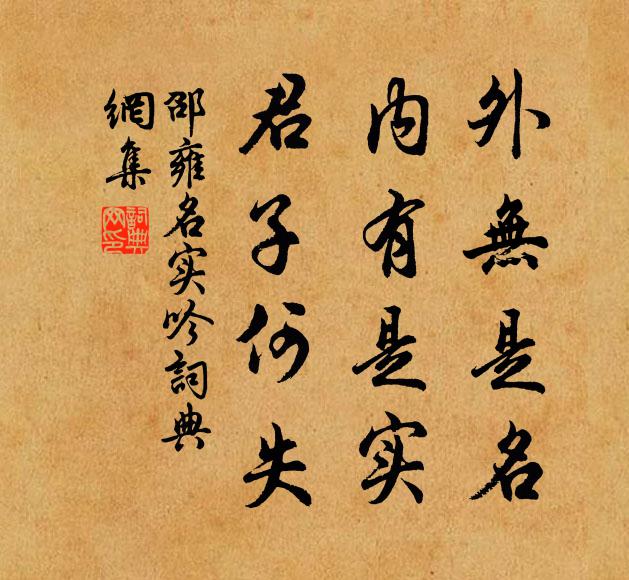 外無是名
内有是实
君子何失
邵雍名实吟詞典
網集
詞典网印